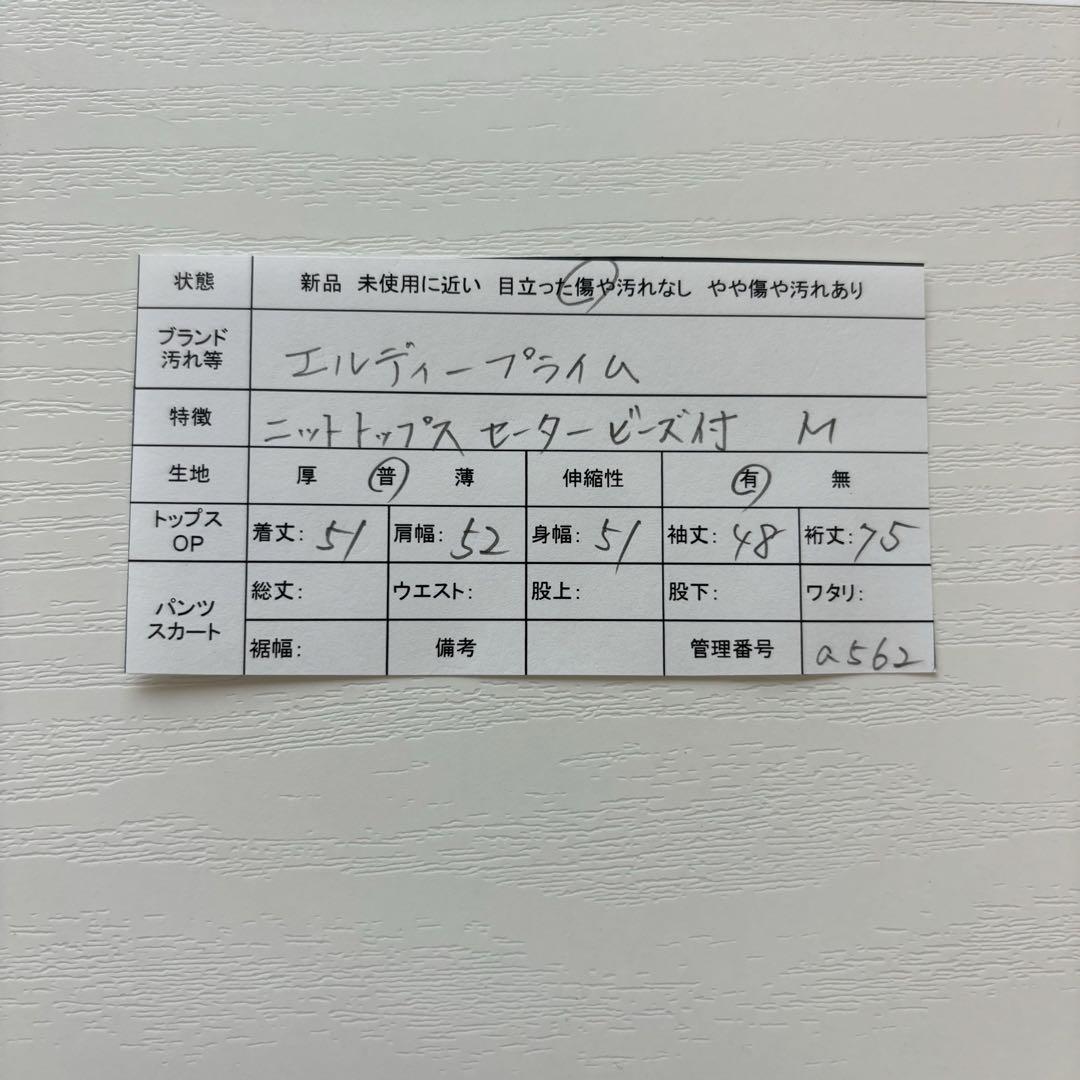 状態 新品 未使用に近い 目立った傷や汚れなし やや傷や汚れあり
ブランド 汚れ等 エルディープライム
特徴 ニットトップス セーター ビーズ付 M
生地 厚 普 薄 伸縮性 有 無
トップス OP 着丈: 51 肩幅: 52 身幅: 51 袖丈: 48 裄丈: 75
パンツ スカート 総丈: ウエスト: 股上: 股下: ワタリ:
裾幅: 備考 管理番号 a562